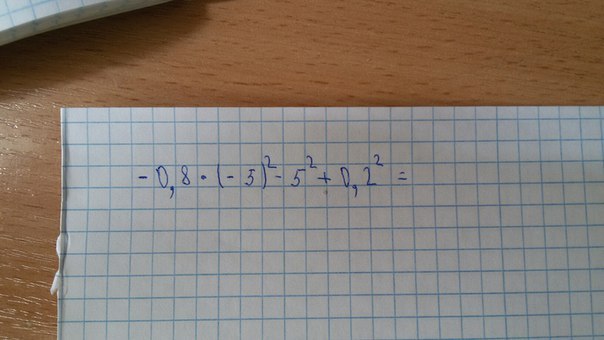 -0,8·(-5)²-5²+0,2²=